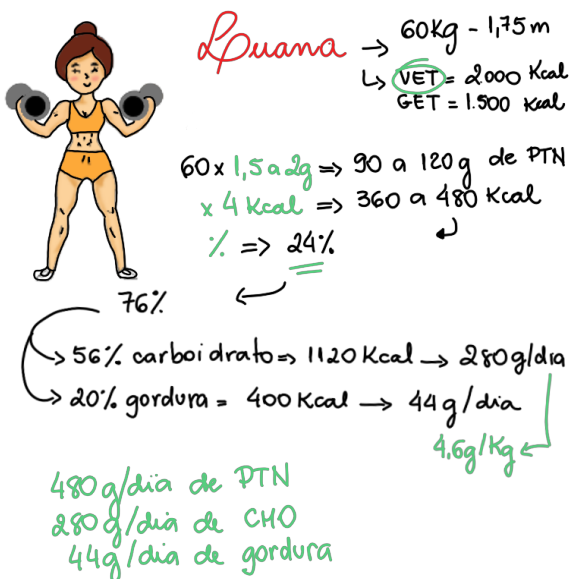 Luana → 60Kg - 1,75m
↳ VET = 2000 Kcal
GET = 1.500 Kcal
60 x 1,5 a 2g => 90 a 120g de PTN
x 4 Kcal => 360 a 480 Kcal
% => 24%
76%
→ 56% carboidrato => 1120 Kcal → 280g/dia
→ 20% gordura = 400 Kcal → 44g/dia
4,6g/Kg
480g/dia de PTN
280g/dia de CHO
44g/dia de gordura